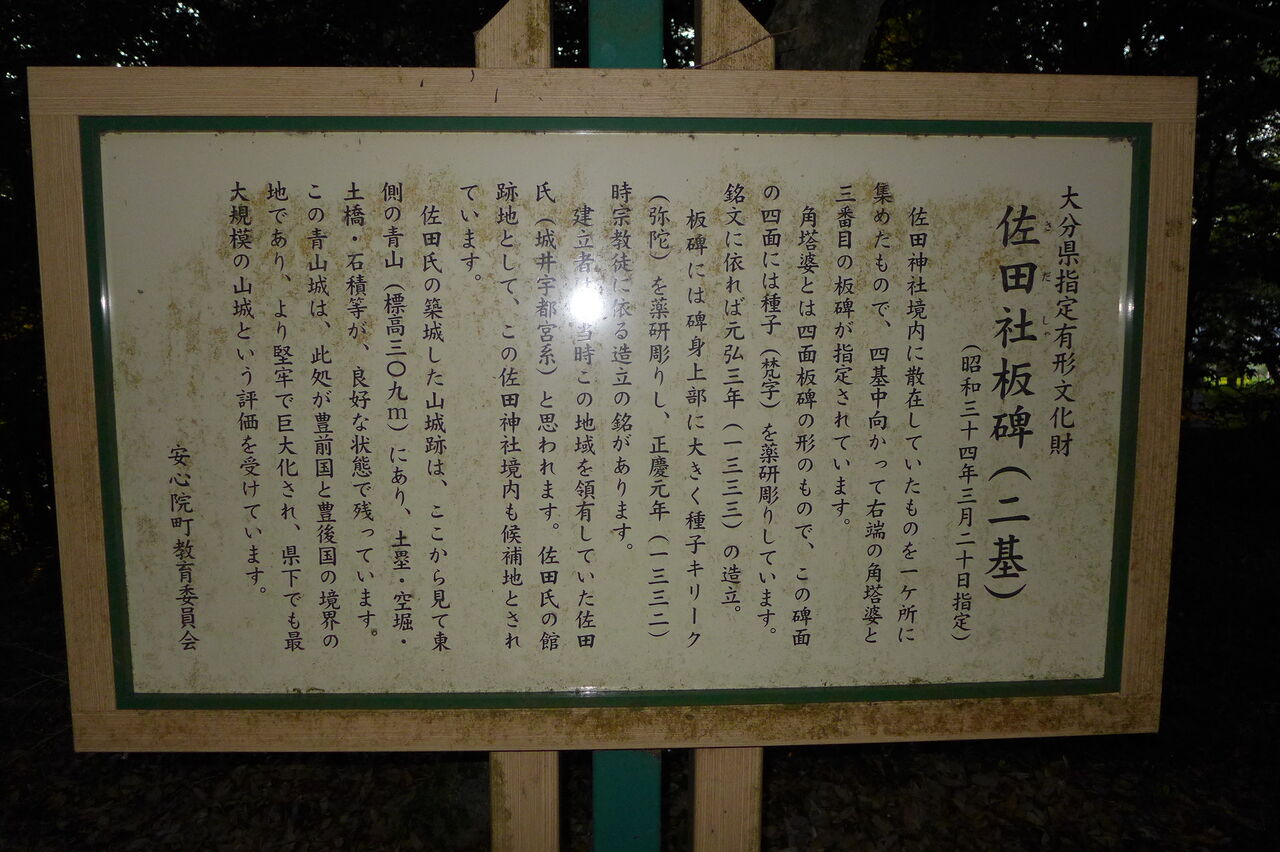 大分県指定有形文化財
佐田社板碑（二基）
さだしゃ
（昭和三十四年三月二十日指定）
佐田神社境内に散在していたものを一ケ所に
集めたもので、四基中向かって右端の角塔婆と
三番目の板碑が指定されています。
角塔婆とは四面板碑の形のもので、この碑面
の四面には種子（梵字）を薬研彫りしています。
銘文に依れば元弘三年（一三三三）の造立。
板碑には碑身上部に大きく種子キリーク
（弥陀）を薬研彫りし、正慶元年（一三三二）
時宗教徒に依る造立の銘があります。
建立者は当時この地域を領有していた佐田
氏（城井宇都宮系）と思われます。佐田氏の館
跡地として、この佐田神社境内も候補地とされ
ています。
佐田氏の築城した山城跡は、ここから見て東
側の青山（標高三〇九ｍ）にあり、土塁・空堀・
土橋・石積等が、良好な状態で残っています。
この青山城は、此処が豊前国と豊後国の境界の
地であり、より堅牢で巨大化され、県下でも最
大規模の山城という評価を受けています。
安心院町教育委員会